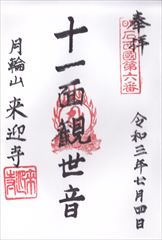 奉拝
明石西国第六番
令和三年七月四日
十一面観世音
月輪山 来迎寺